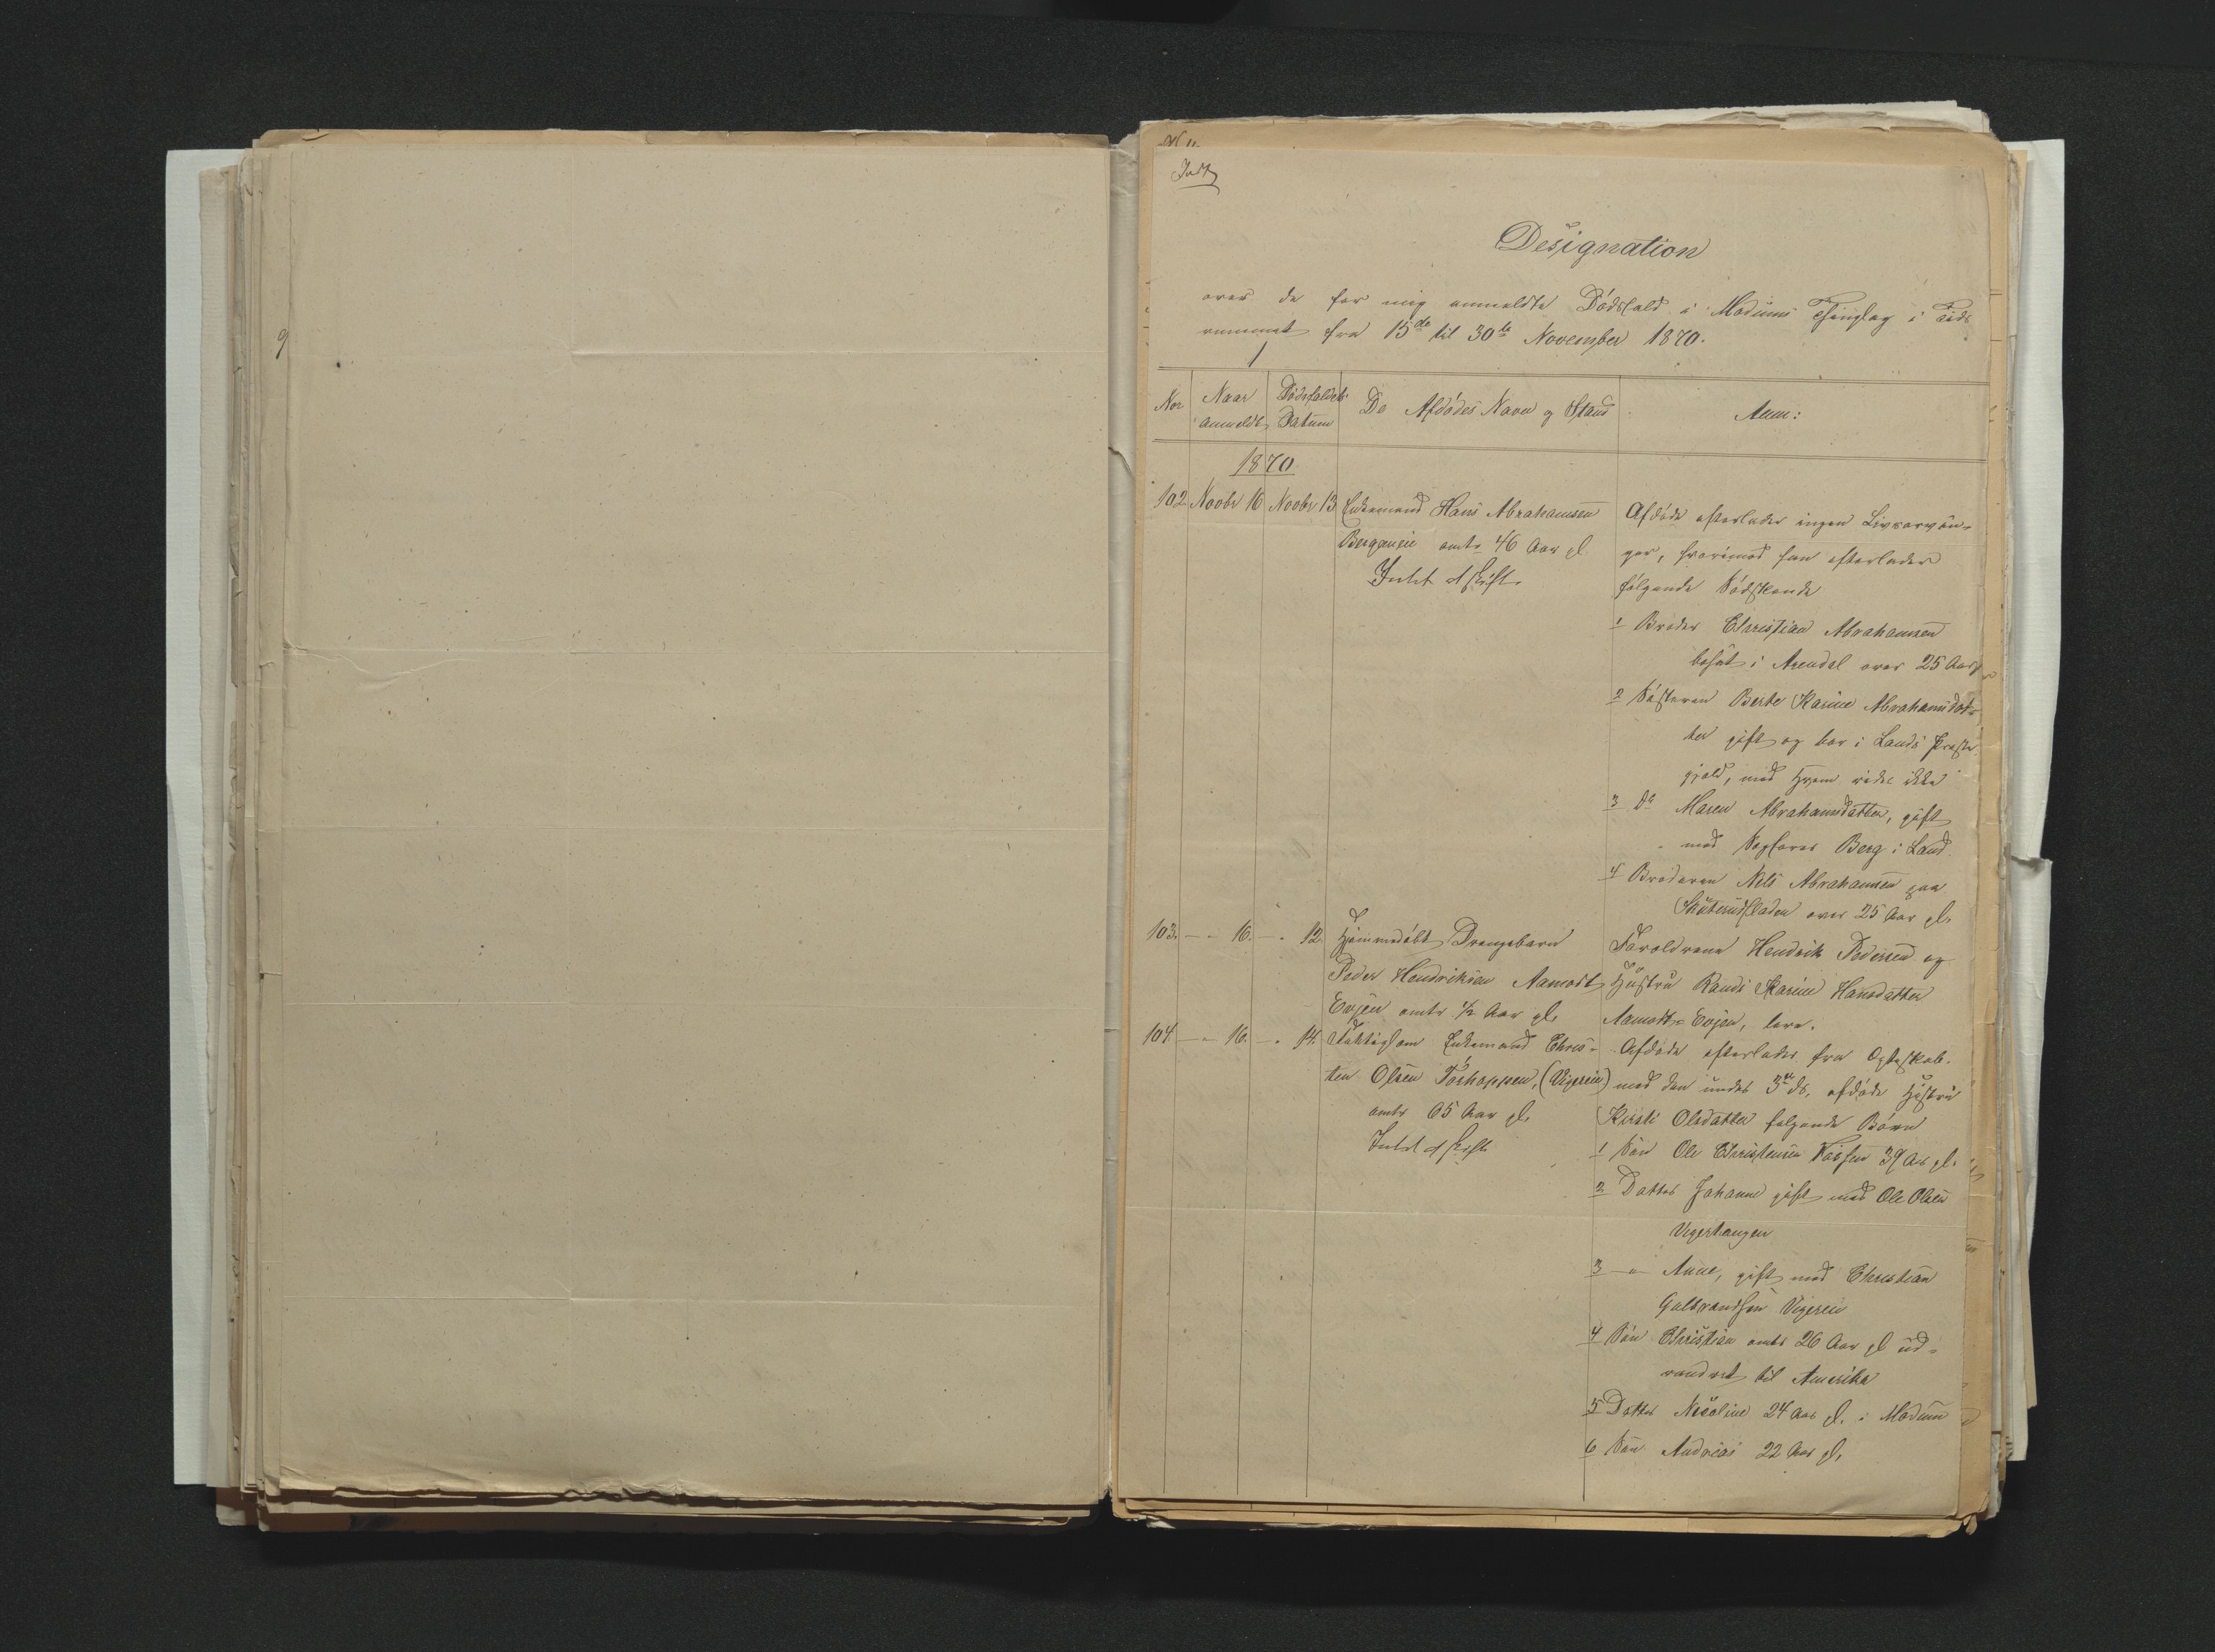 9
Indt
Designation
over de for mig anmeldte Dödsfald i Modums Thinglag i Tids
rummet fra 15de til 30te November 1870.
Nor
Naar
anmeldt
Dödsfaldets
Datum
De Afdödes Navn og Stand
Anm:
1870
102 Novbr 16 Novbr 13 Enkemand Hans Abrahamsen
Berganeie omtr 46 Aar gl
Intet at skifte
Afdöde efterlader ingen Livsarvin-
ger, hvorimod han efterlader
fölgende Södskende
1 Broder Christian Abrahamsen
bosat i Arendal over 25 Aar
2 Sösteren Berte Karine Abrahamsdat-
ter gift og bor i Lands Præste
gjeld, med hvem vides ikke
3 do Maren Abrahamsdatter, gift
med Berg i Land
4 Broderen Nils Abrahamsen paa
over 25 Aar gl.
103. — " 16. — " 12. Hjemmedöbt Drengebarn
Peder Hendriksen Aamodt
Eojen omtr ½ Aar gl.
Forældrene Hendrik Pedersen og
Hustru Randi Karine Hansdatter
Aamodt-Eojen, leve.
104. — " 16. — " 14. Fattiglem Enkemand Chris-
ten Olsen (Vigereie)
omtr 65 Aar gl.
Intet at skifte
Afdöde efterlader fra Egteskab
med den under 3de ds. afdöde Hustru
Kirsti Olsdatter fölgende Börn
1 Sön Ole Christensen 39 Aar gl.
2 Datter Johanne gift med Ole Olsen
Vigerhaugen
3 — " Anne, gift med Christian
Gulbrandsen Vigereie
4 Sön Christian omtr 26 Aar gl ud-
vandret til Amerika
5 Datter Nicoline 24 Aar gl. i Modum
6 Sön Andreas 22 Aar gl.